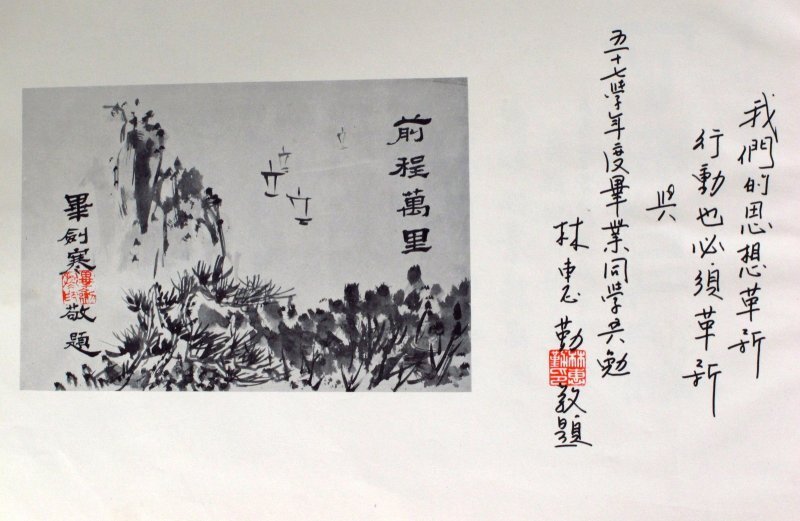 我們的思想革新
行動也必須革新
與
五十七學年度畢業同學共勉
林惠勤敬題
林惠勤印
前程萬里
畢劍寒敬題